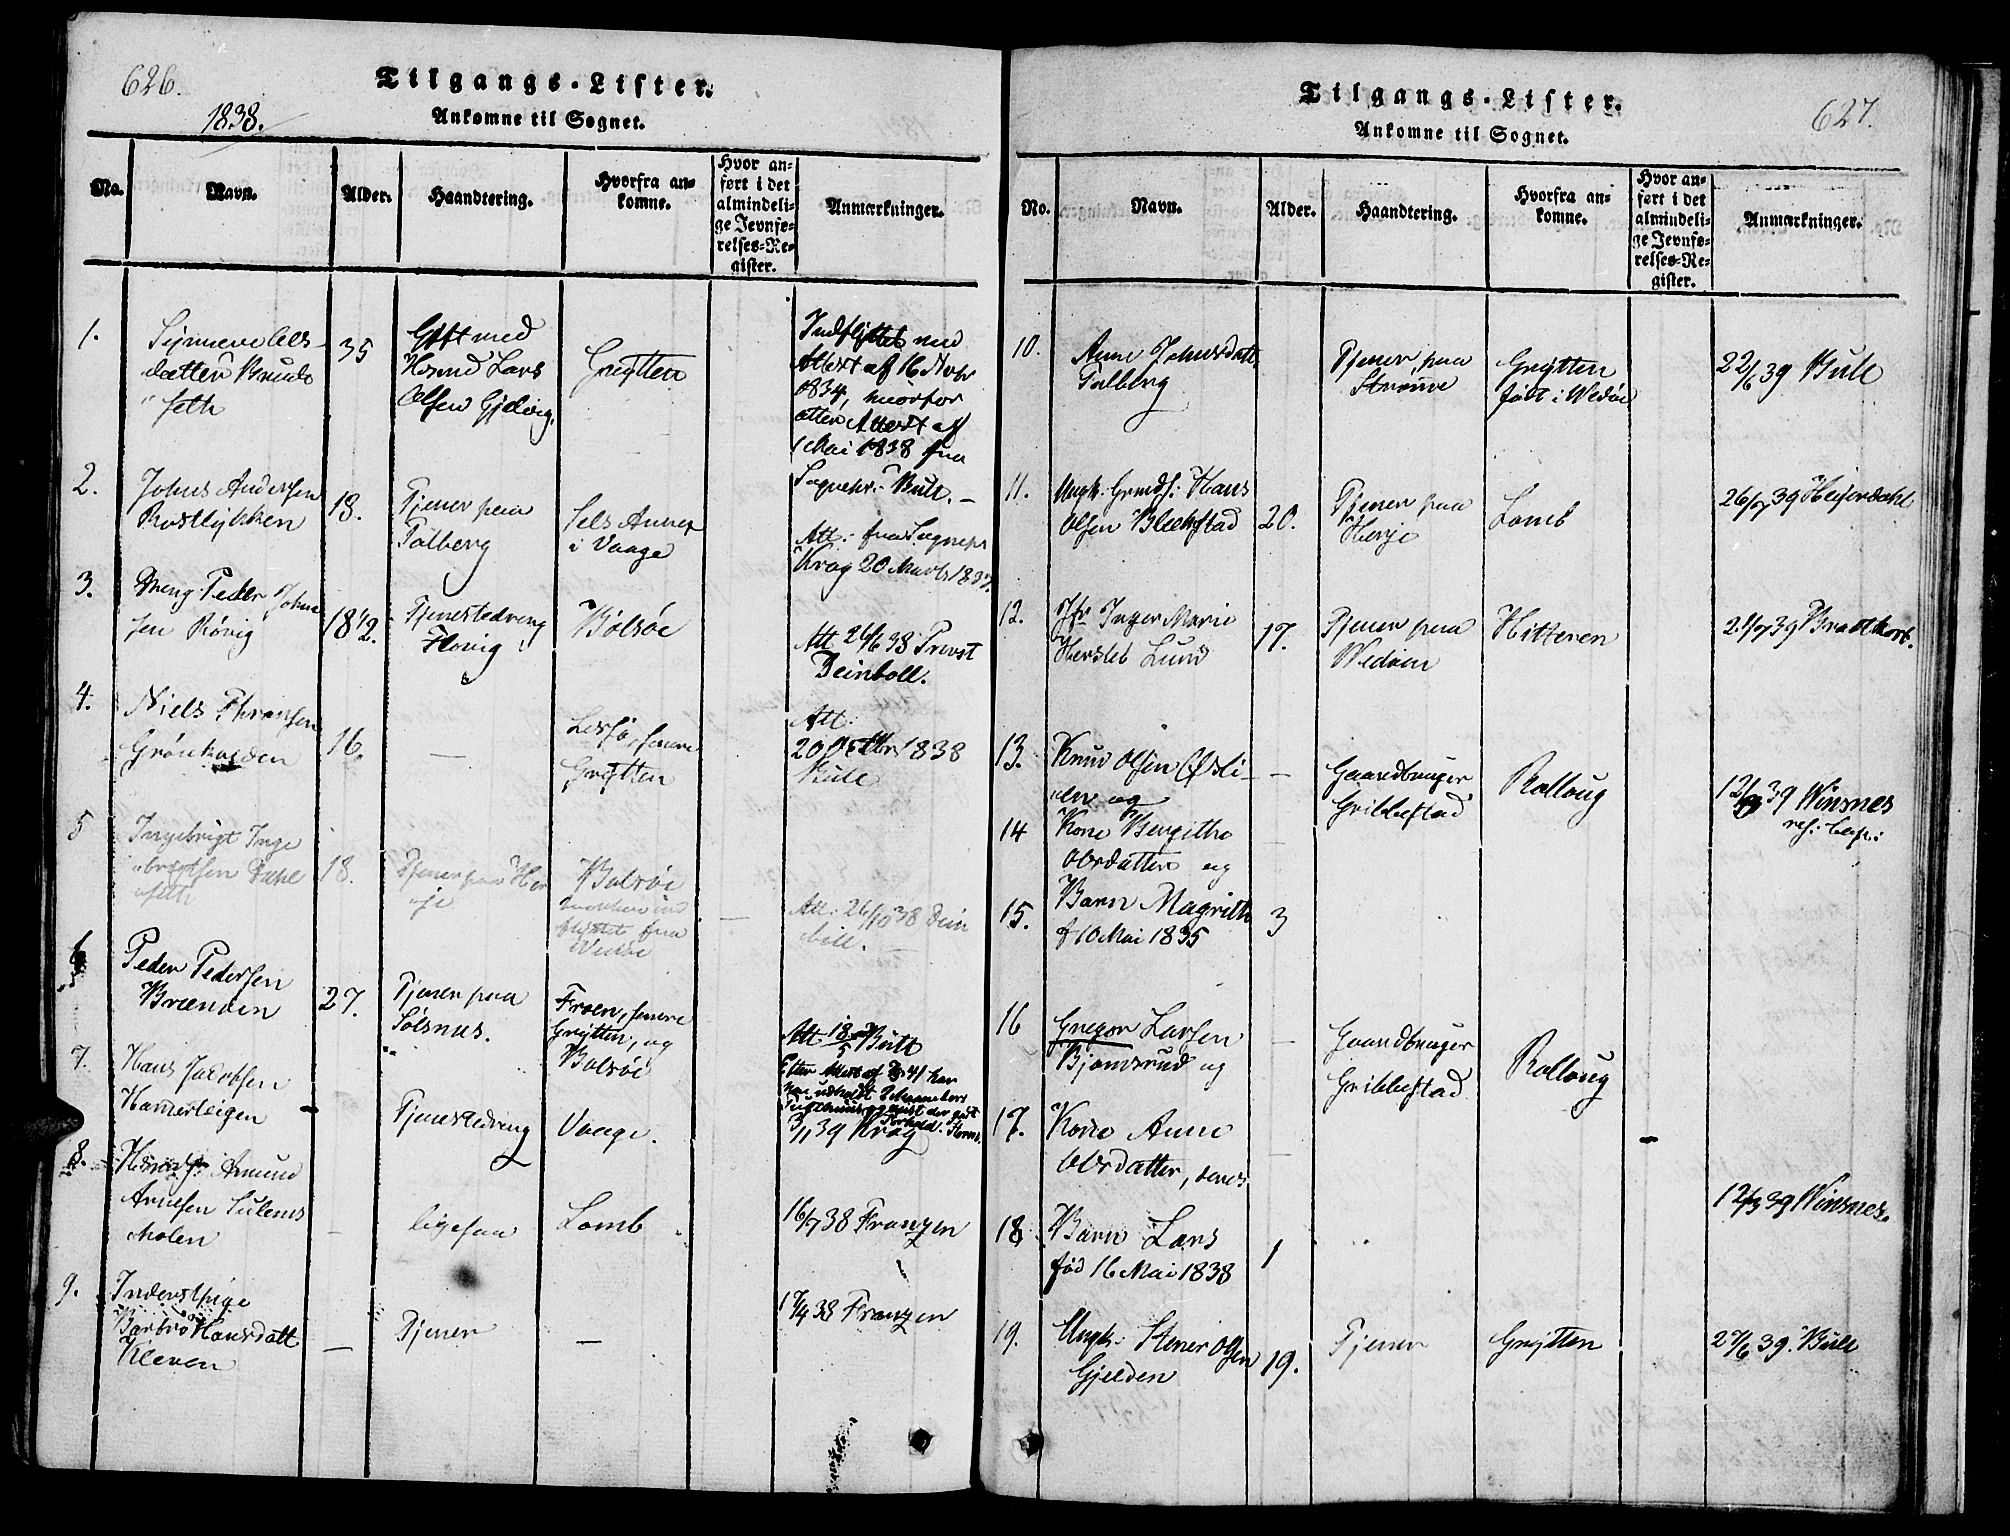 626.
Tilgangs-Lister.
1838.
Ankomne til Sognet.
No.
Navn.
Alder.
Haandtering.
Hvorfra an-
komne.
Hvor an-
ført i det
almindeli-
ge Jevnfø-
relses-Re-
gister.
Anmærkninger.
1.
Synneve Ols-
datter Brude
seth
35
Gift med
Hsmd Lars
Olsen Gjelvig.
Grytten
Indflyttet med
Attest af 16 Novbr
1834, hvorfor
atter Attest af
1 Mai 1838 fra
Sognepr: Bull. -
2.
Johns Andersen
Rostlykken
18.
Tjener paa
Talberg
Sels Annex
i Vaage
Att: fra Sognepr
Krag 20 Marts 1837.
3.
Dreng Peder John
sen Rövig
18 1/2.
Tjenestedreng
Flovig
Bolsöe
Att 26/6 38 Provst
Deinboll.
4.
Niels Thronsen
Grönhalden
16.
—
Lessö, senere
Grytten
Att:
20 Octbr 1838
Bull
5
Ingebrigt Inge
brigtsen Dahl
seth
18.
Tjener paa Her
je
Bolsöe
indflyttet fra
Vedöe
Att: 26/10 38 Dein
boll.
6
Peder Pedersen
Brænden
27.
Tjener paa
Sölsnes.
Froen, senere
Grytten, og
Bolsöe
Att 18/5 Bull
7.
Hans Jacobsen
Hamerleigen
—
Tjenestedreng
Vaage.
3/1 39 Krag
8.
Amund
Arnesen Sulems
Molen
—
ligesaa
Lomb
16/7 38 Franzen
9.
Inderstpige
Barbro Hansdatt
Kleven
—
Tjener
—
17/4 38 Franzen
Tilgangs-Lister.
627.
Ankomne til Sognet.
No.
Navn.
Alder.
Haandtering.
Hvorfra an-
komne.
Hvor an-
ført i det
almindeli-
ge Jevnfø-
relses-Re-
gister.
Anmærkninger.
10.
Anne Johnsdatt
Talberg
Tjener paa
Strande
Grytten
født i Wedöe
22/6 39 Bull
11.
Ungk. Grmds: Hans
Olsen Bleekstad
20.
Tjener paa
Herje
Lomb
26/7 39 Heyerdahl
12.
Jfr Inger Marie
Hersleb Lund
17.
Tjener paa
Wedöen
Hitteren
21/7 39 Brodtkorb.
13.
Knud Olsen Østli-
en og
—
Gaardbruger
Gribbestad
Rolloug
12/3 39 Winsnes
res: Cap:
14
Kone Bergithe
Olsdatter og
15.
Barn Magrithe
f 10 Mai 1835
3
16
Gregor Larsen
Bjomsrud og
—
Gaardbruger
Gribbestad
Rolloug
17.
Kone Anne
Olsdatter, deres
—
12/3 39 Winsnes.
18
Barn Lars
fød 16 Mai 1838
1
19.
Ungk. Stener Olsen
Gjelden
19.
Tjener
Grytten
27/6 39. Bull